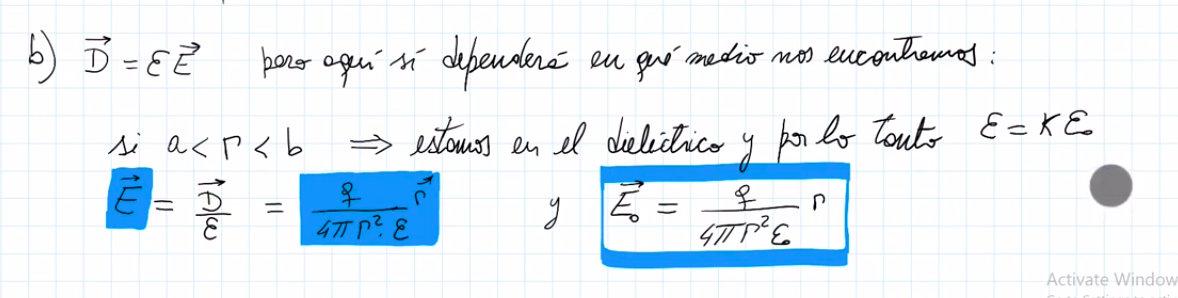 b) D⃗ = εE⃗ pero aquí sí dependerá en qué medio nos encontremos:
si a < r < b ⟹ estamos en el dieléctrico y por lo tanto ε = Kε₀
E⃗ = D⃗/ε = q/(4πr²·ε) r⃗ y E⃗₀ = q/(4πr²ε₀) r
Activate Window